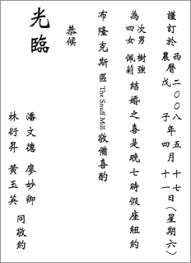 謹訂於
西曆二〇〇八年五月十七日（星期六）
農曆戊子四月十二日
為
次男 樹強
四女 佩莉
結婚之喜是晚七時假座紐約
布隆克斯區 The Snuff Mill 敬備喜酌
恭候
光臨
潘文德 廖妙卿
林衍昇 黃玉英
同敬約